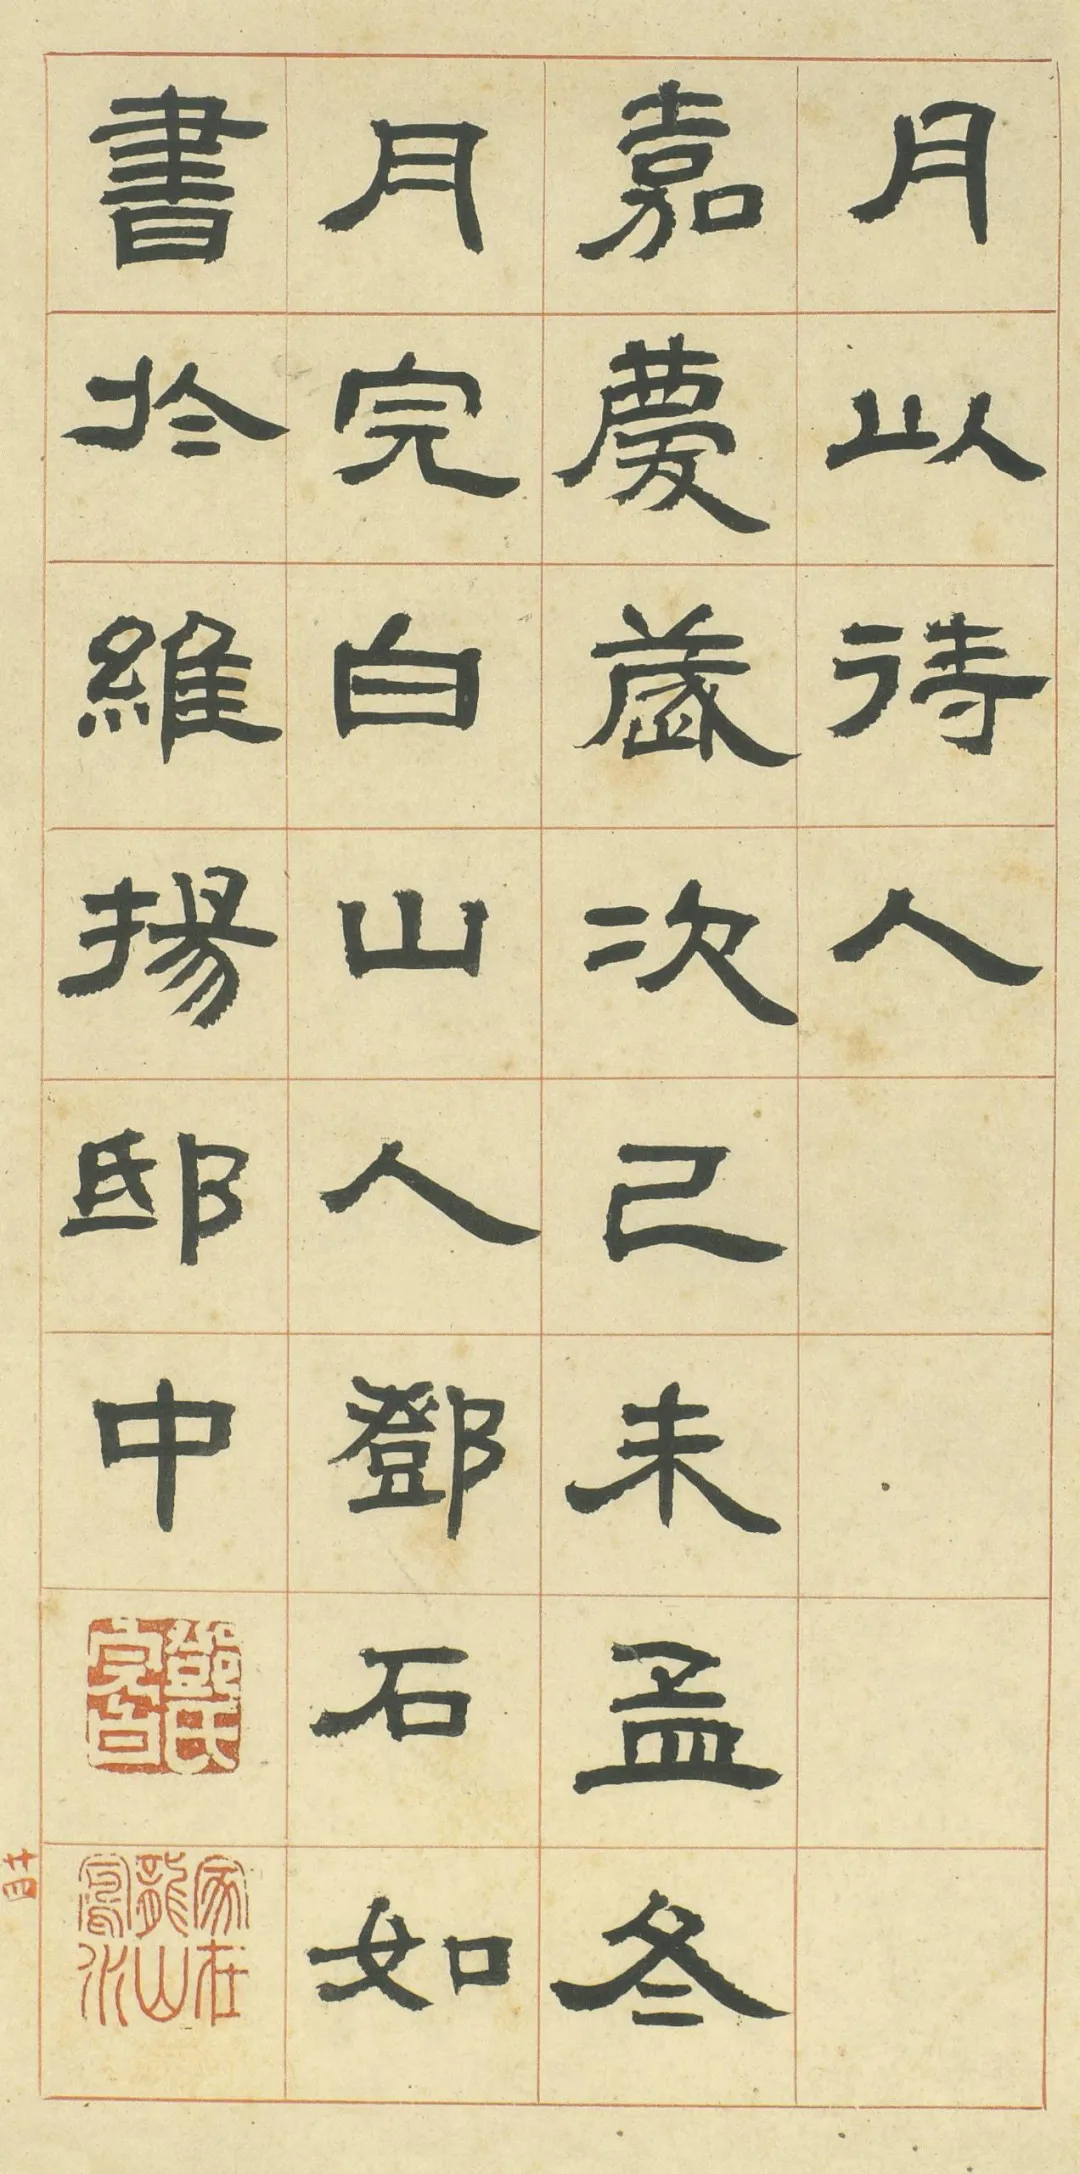 月以待人
嘉慶歲次己未孟冬
月完白山人鄧石如
書於維揚邸中
鄧氏完白
家在龍山鳳水
廿四